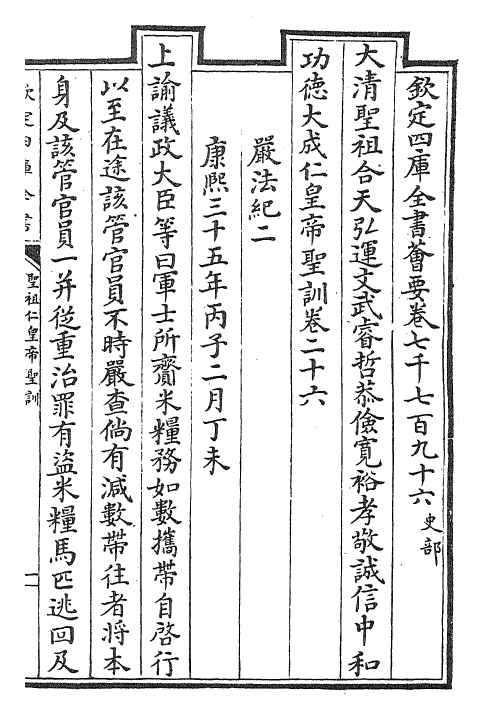 欽定四庫全書薈要卷七千七百九十六 史部
大清聖祖合天弘運文武睿哲恭儉寬裕孝敬誠信中和
功德大成仁皇帝聖訓卷二十六
嚴法紀二
康熙三十五年丙子二月丁未
上諭議政大臣等曰軍士所齎米糧務如數攜帶自啓行
以至在途該管官員不時嚴查倘有減數帶往者將本
身及該管官員一并從重治罪有盜米糧馬匹逃回及
欽定四庫全書
聖祖仁皇帝聖訓
一